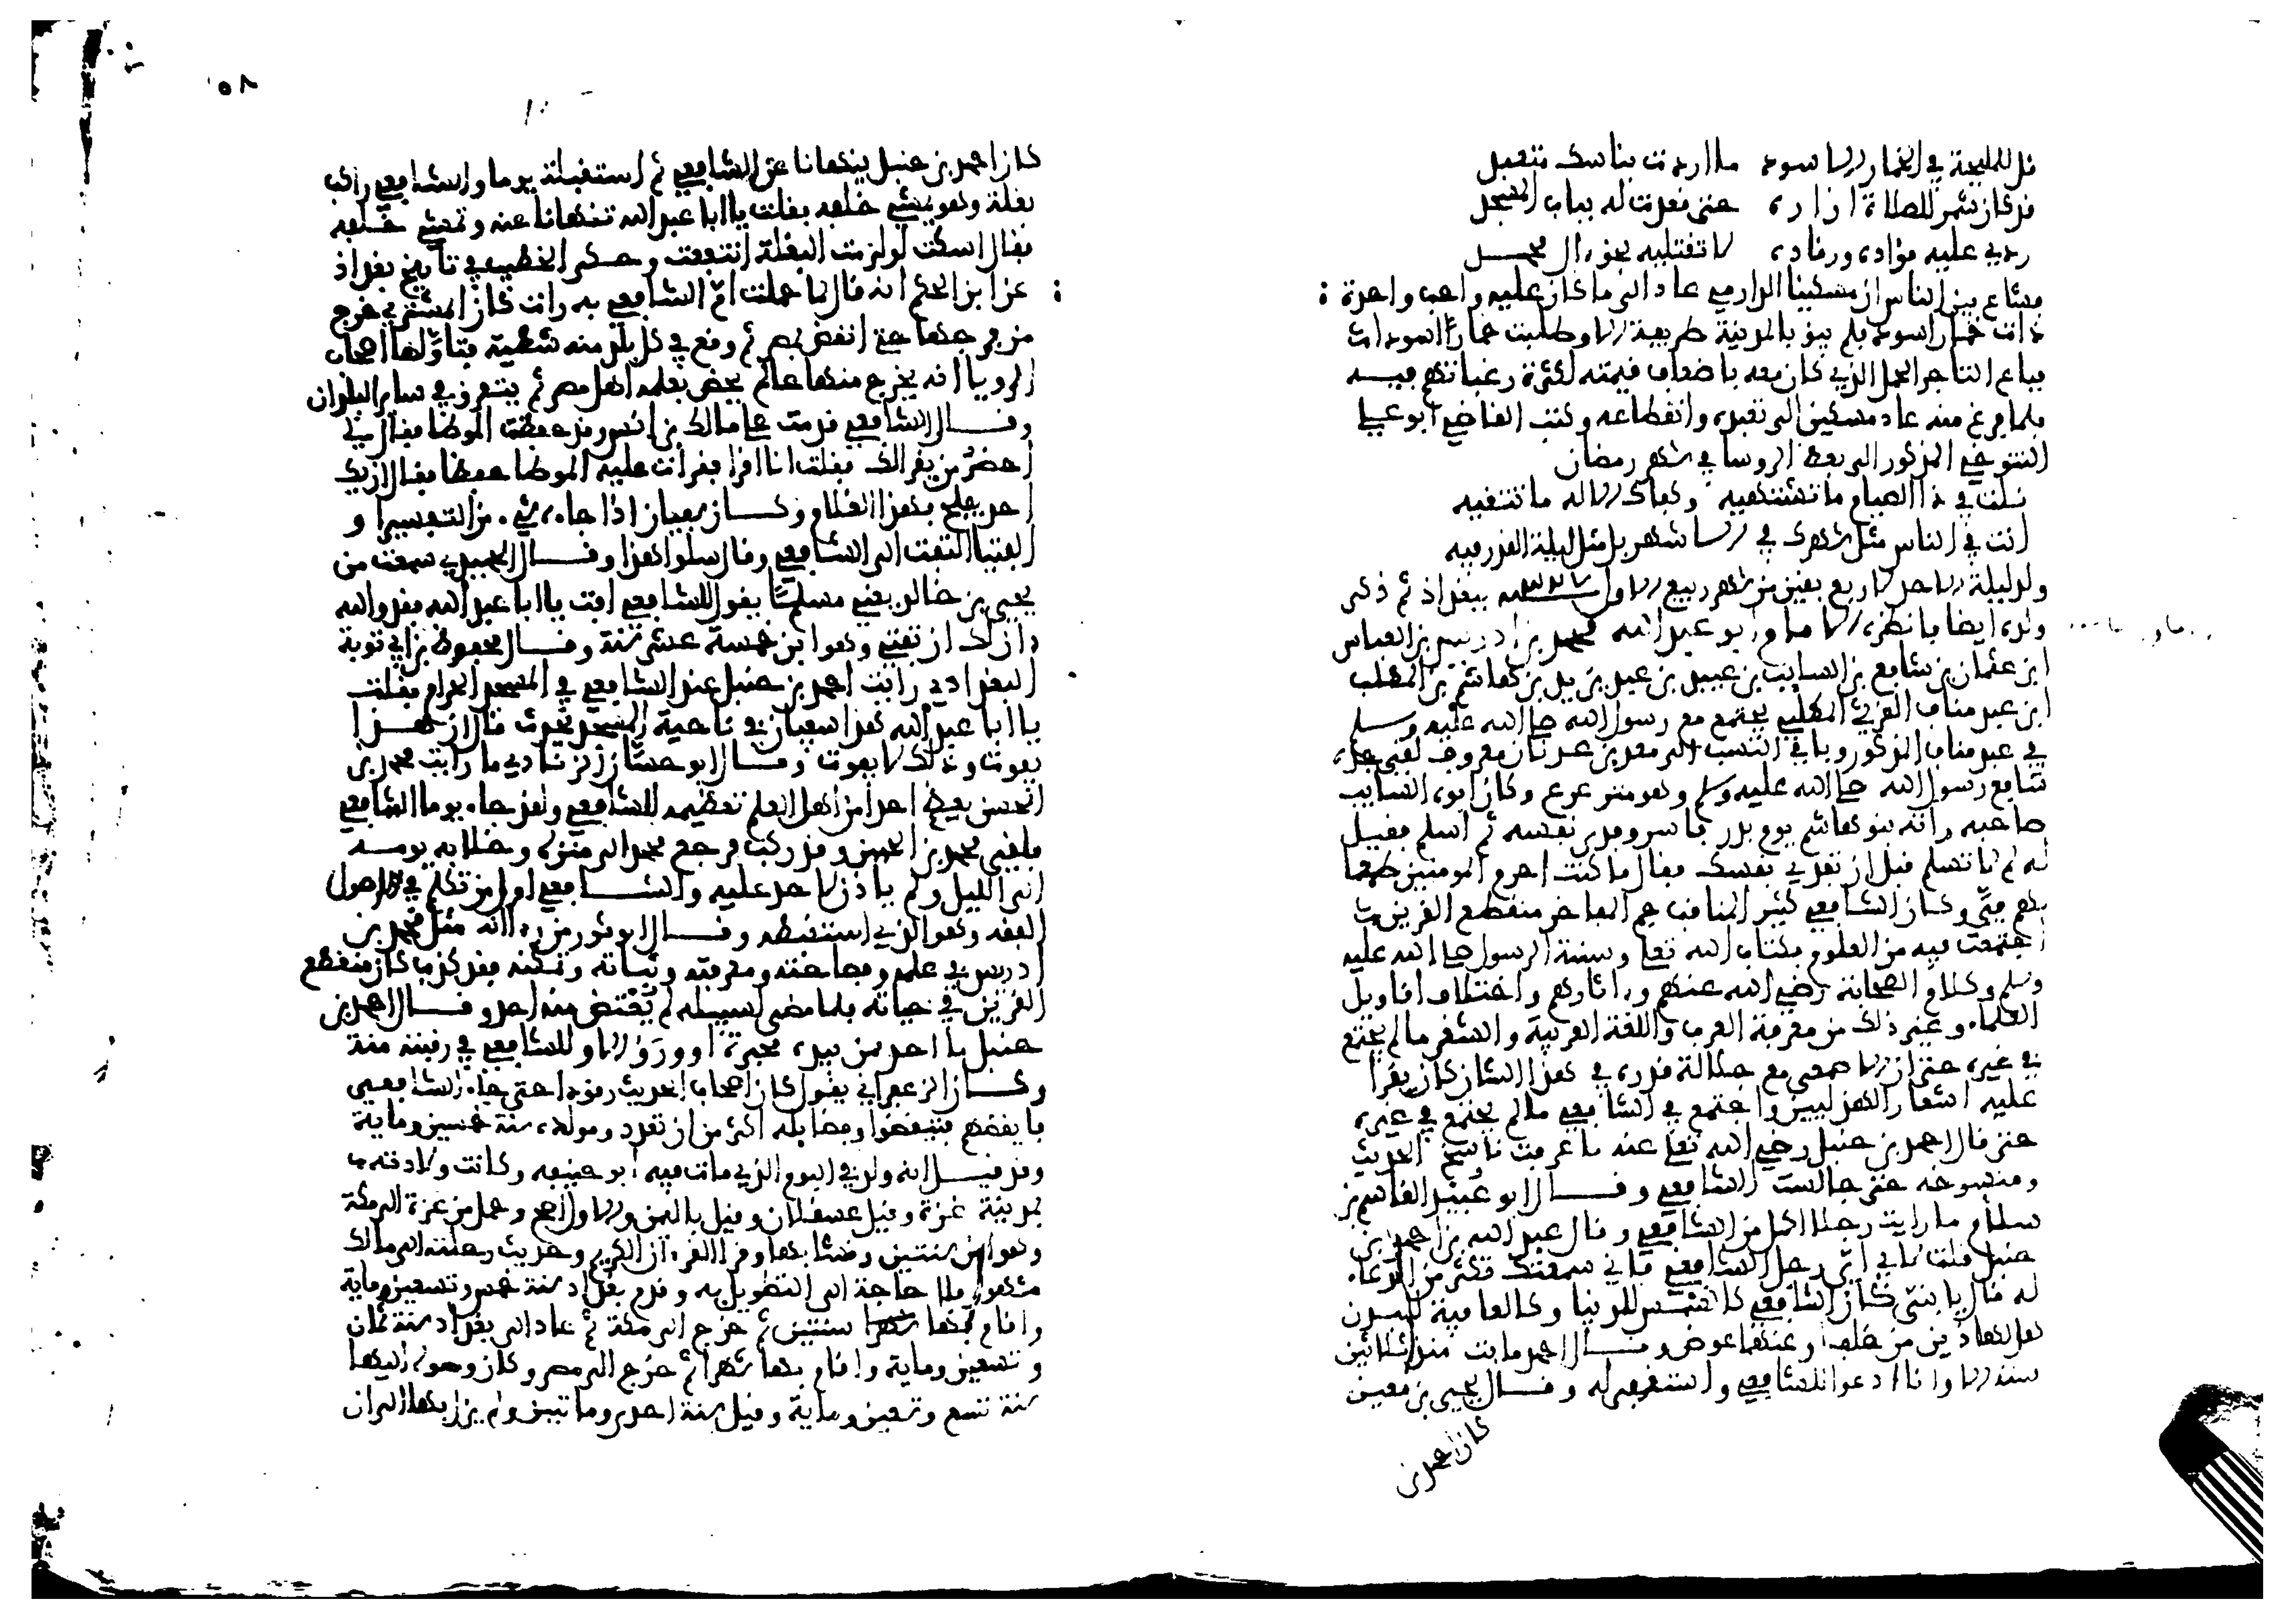 قل للمليحة في الخمار الاسود ماذا اردت بناسك متعبد
قد كان شمر للصلاة ازاره حتى قعدت له بباب المسجد
ردي عليه فؤاده ورقاده لا تقتليه بحق ال محمد
فشاع بين الناس ان مسكينا الدارمي عاد الى ما كان عليه واحب واحدة
ذات خمار اسود فلم يبق بالمدينة ظريفة الا وطلبت خمارا اسود
فباع التاجر الحمل الذي كان معه باضعاف قيمته لكثرة رغباتهم فيه
فلما فرغ منه عاد مسكين الى تعبده وانقطاعه وكتب القاضي ابو علي
التنوخي المذكور الى بعض الروسا في شهر رمضان
نلت في ذا الصيام ما تشتهيه وكفاك الاله ما تتقيه
انت في الناس مثل شهرك في الاشهر بل مثل ليلة القدر فيه
ولد ليلة الاحد لاربع بقين من شهر ربيع الاول سنة ببغداذ ثم ذكر
ولده ايضا فانظره الامام ابو عبد الله محمد بن ادريس بن العباس
ابن عثمان بن شافع بن السايب بن عبيد بن عبد بن يزيد بن هاشم بن المطلب
ابن عبد مناف القرشي المطلبي يجتمع مع رسول الله صلى الله عليه وسلم
في عبد مناف المذكور وباقي النسب الى معد بن عدنان معروف لقي جده
شافع رسول الله صلى الله عليه وسلم وهو مترعرع وكان ابوه السايب
صاحب راية بني هاشم يوم بدر فاسر وفدى نفسه ثم اسلم فقيل
له لم لا تسلم قبل ان تفدي نفسك فقال ما كنت احرم المومنين طمعا
لهم في وكان الشافعي كثير المناقب جم المفاخر منقطع القرين
اجتمعت فيه من العلوم بكتاب الله تعالى وسنة الرسول صلى الله عليه
وسلم وكلام الصحابة رضي الله عنهم واثارهم واختلاف اقاويل
العلماء وغير ذلك من معرفة العرب واللغة العربية والشعر ما لم يجتمع
في غيره حتى ان الاصمعي مع جلالة قدره في هذا الشان كان يقرا
عليه اشعار الهذليين واجتمع في الشافعي ما لم يجتمع في غيره
حتى قال احمد بن حنبل رضي الله تعالى عنه ما عرفت ناسخ الحديث
ومنسوخه حتى جالست الشافعي وقال ابو عبيد القاسم بن
سلام ما رايت رجلا اكمل من الشافعي وقال عبد الله بن احمد بن
حنبل قلت لابي اي رجل الشافعي فاني سمعتك تكثر من الدعاء
له قال يا بني كان الشافعي كالشمس للدنيا وكالعافية للبدن
هل لهاذين من خلف او عنهما عوض وقال احمد ما بت منذ ثلاثين
سنة الا وانا ادعو للشافعي واستغفر له وقال يحيى بن معين
كان احمد بن
كان احمد بن حنبل ينهانا عن الشافعي ثم استقبلته يوما والشافعي راكب
بغلة وهو يمشي خلفه فقلت يا ابا عبد الله تنهانا عنه وتمشي خلفه
فقال اسكت لو لزمت البغلة انتفعت وحكى الخطيب في تاريخ بغداذ
عن ابن الحكم انه قال لما حملت ام الشافعي به رات كان المشتري خرج
من فرجها حتى انقض بمصر ثم وقع في كل بلد منه شظية فتاولها اصحاب
الرويا انه يخرج منها عالم يخص بعلمه اهل مصر ثم يتفرق في ساير البلدان
وقال الشافعي قدمت على مالك بن انس وقد حفظت الموطا فقال لي
احضر من يقرا لك فقلت انا اقرا فقرات عليه الموطا حفظا فقال ان يك
احد يفلح فهذا الغلام وكان سفيان اذا جاءه شيء من التفسير او
الفتيا التفت الى الشافعي وقال سلوا هذا وقال الحميدي سمعت من
يحيى بن خالد يعني مسلما يقول للشافعي افت يا ابا عبد الله فقد والله
ءان لك ان تفتي وهو ابن خمسة عشر سنة وقال محفوظ بن ابي توبة
البغدادي رايت احمد بن حنبل عند الشافعي في المسجد الحرام فقلت
يا ابا عبد الله هذا سفيان في ناحية المسجد يحدث فقال ان هذا
يفوت وذلك لا يفوت وقال ابو حسان الزيادي ما رايت محمد بن
الحسن يعظم احدا من اهل العلم تعظيمه للشافعي ولقد جاء يوما الشافعي
فلقي محمد بن الحسن وقد ركب فرجع محمد الى منزله وخلا به يومه
الى الليل ولم ياذن لاحد عليه والشافعي اول من تكلم في اصول
الفقه وهو الذي استنبطه وقال ابو ثور من زعم انه راى مثل محمد بن
ادريس في علمه وفصاحته ومعرفته وثباته وتمكنه فقد كذب كان منقطع
القرين في حياته فلما مضى لسبيله لم يعتض منه احد وقال احمد بن
حنبل ما احد ممن بيده محبرة او ورق الا وللشافعي في رقبته منة
وكان الزعفراني يقول كان اصحاب الحديث رقودا حتى جاء الشافعي
فايقظهم فتيقظوا وفضايله اكثر من ان تعد ومولده سنة خمسين وماية
وقد قيل انه ولد في اليوم الذي مات فيه ابو حنيفة وكانت ولادته
بمدينة غزة وقيل عسقلان وقيل باليمن والاول اصح وحمل من غزة الى مكة
وهو ابن سنتين ونشا بها وقرا القرءان الكريم وحديث رحلته الى مالك
مشهور فلا حاجة الى التطويل به وقدم بغداد سنة خمس وتسعين وماية
واقام بها سنتين ثم خرج الى مكة ثم عاد الى بغداد سنة ثمان
وتسعين وماية واقام بها شهرا ثم خرج الى مصر وكان وصوله اليها
سنة تسع وتسعين وماية وقيل سنة احدى وماتيين ولم يزل بها الى ان